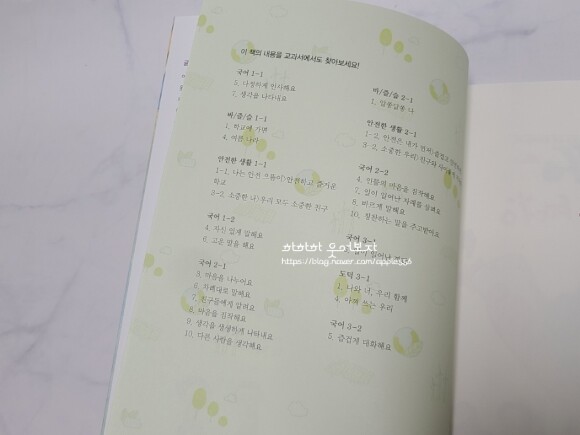 이 책의 내용을 교과서에서도 찾아보세요!
국어 1-1
5. 다정하게 인사해요
7. 생각을 나타내요
바/즐/슬 1-1
1. 학교에 가면
4. 여름 나라
안전한 생활 1-1
1-1. 나는 안전 으뜸이>안전하고 즐거운
학교
3-2. 소중한 나>우리 모두 소중한 친구
국어 1-2
4. 자신 있게 말해요
6. 고운 말을 해요
국어 2-1
3. 마음을 나누어요
6. 차례대로 말해요
7. 친구들에게 알려요
8. 마음을 짐작해요
9. 생각을 생생하게 나타내요
10. 다른 사람을 생각해요
바/즐/슬 2-1
1. 알쏭달쏭 나
안전한 생활 2-1
1-2. 안전은 내가 먼저>
3-2. 소중한 우리>친구와
국어 2-2
4. 인물의 마음을 짐작해요
7. 일이 일어난 차례를 살펴요
8. 바르게 말해요
10. 칭찬하는 말을 주고받아요
국어 3-1
일이 일어난
도덕 3-1
1. 나와 너, 우리 함께
4. 아껴 쓰는 우리
국어 3-2
5. 즐겁게 대화해요
하하하 웃어보자
https://blog.naver.com/apple556